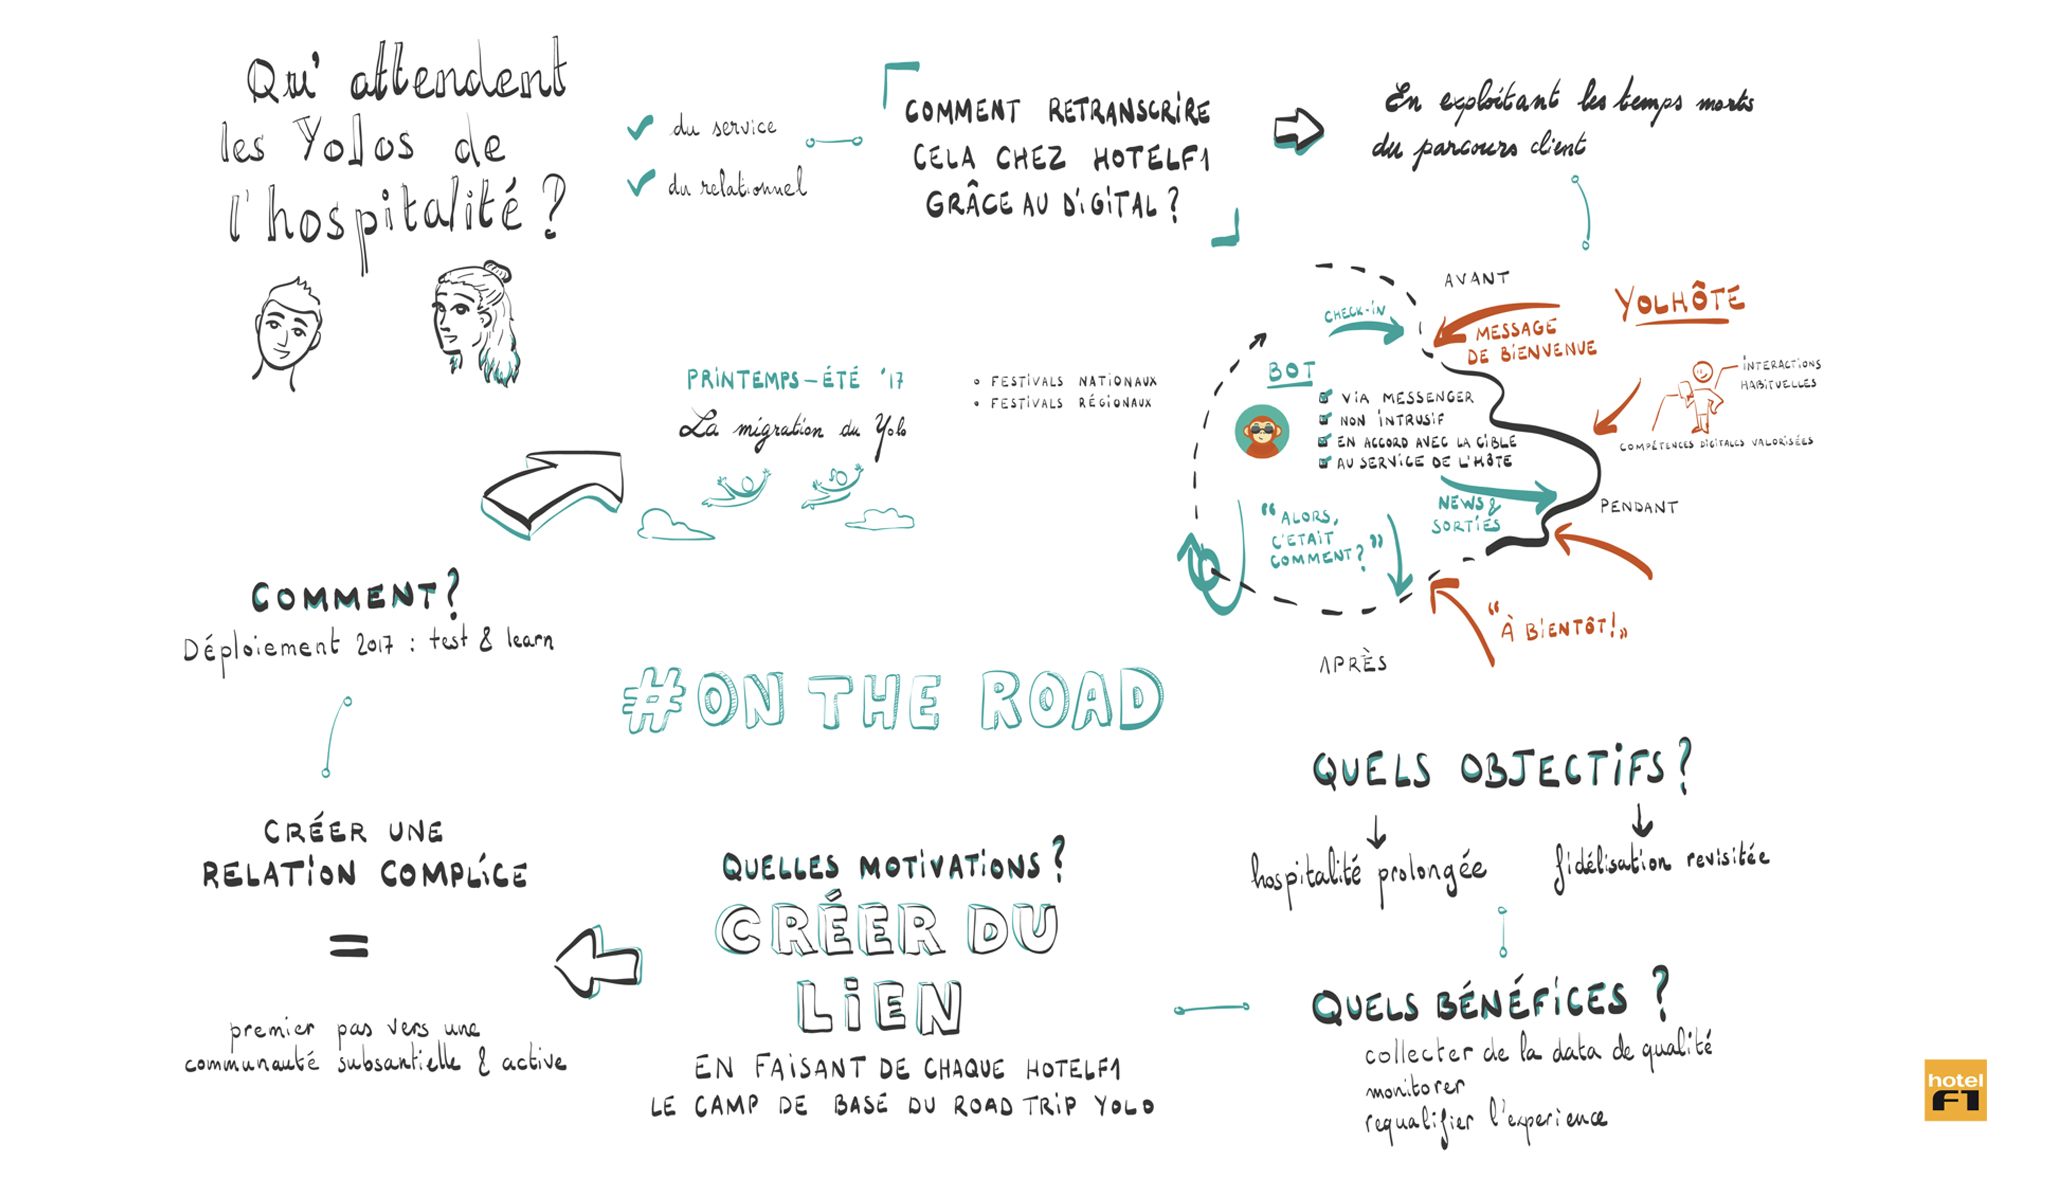 Qu'attendent
les Yolos de
l'hospitalité ?
du service
du relationnel
COMMENT RETRANSCRIRE
CELA CHEZ HOTELF1
GRÂCE AU DIGITAL ?
En exploitant les temps morts
du parcours client
AVANT
CHECK-IN
YOLHÔTE
MESSAGE
DE BIENVENUE
INTERACTIONS
HABITUELLES
COMPÉTENCES DIGITALES VALORISÉES
BOT
VIA MESSENGER
NON INTRUSIF
EN ACCORD AVEC LA CIBLE
AU SERVICE DE L'HÔTE
NEWS &
SORTIES
PENDANT
"ALORS,
C'ETAIT
COMMENT ?"
"À BIENTÔT !"
APRÈS
PRINTEMPS-ÉTÉ '17
La migration du Yolo
FESTIVALS NATIONAUX
FESTIVALS RÉGIONAUX
COMMENT ?
Déploiement 2017 : test & learn
#ON THE ROAD
QUELS OBJECTIFS ?
hospitalité prolongée
fidélisation revisitée
QUELS BÉNÉFICES ?
collecter de la data de qualité
monitorer
requalifier l'experience
QUELLES MOTIVATIONS ?
CRÉER DU
LIEN
EN FAISANT DE CHAQUE HOTELF1
LE CAMP DE BASE DU ROAD TRIP YOLO
CRÉER UNE
RELATION COMPLICE
=
premier pas vers une
communauté subsantielle & active
hotel
F1